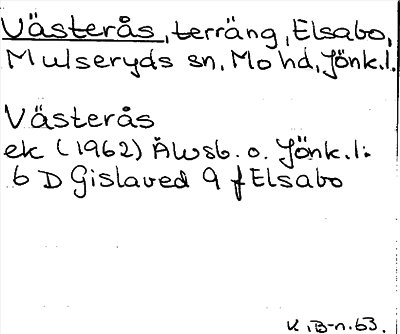 Västerås, terräng, Elsabo,
Mulseryds sn, Mo hd, Jönk.l.
Västerås
ek (1962) Älvsb. o. Jönk.l:
6 D Gislaved 9 f Elsabo
K.B-n.63.